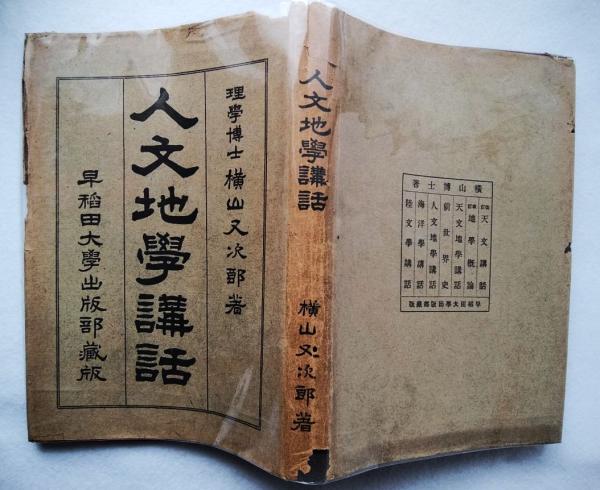 理學博士 横山又次郎著
人文地學講話
早稲田大學出版部藏版
人文地學講話
横山又次郎著
橫山博士著
天文講話
地學概論
天文地學講話
前世界史
人文地學講話
海洋學講話
陸文學講話
早稲田大學出版部藏版